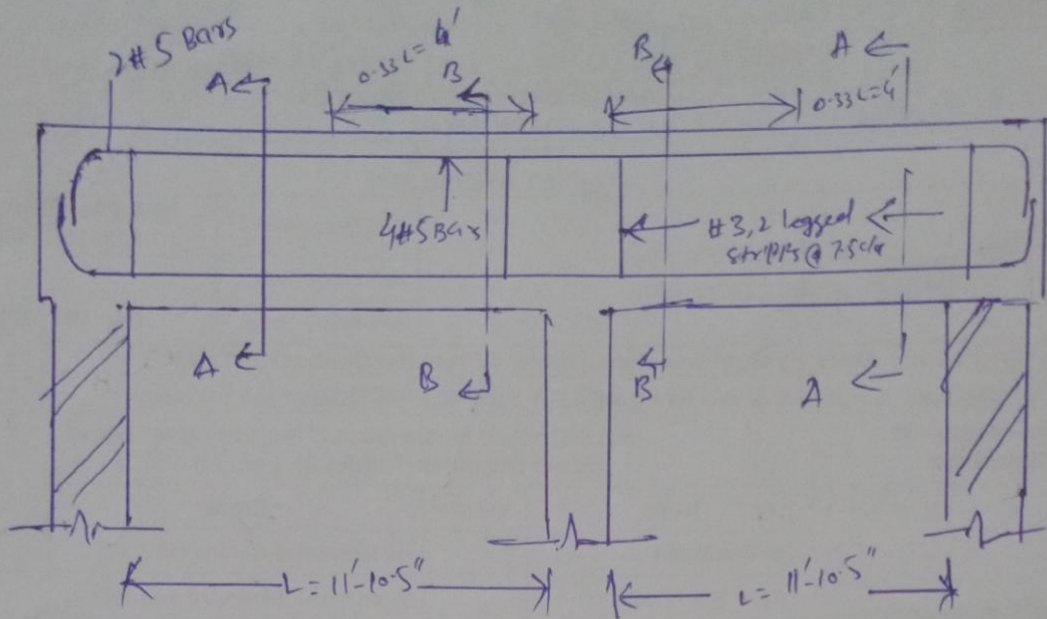 2#5 Bars
A
0.33L=4'
B
B
A
0.33L=4'
4#5Bars
#3,2 legged
A
B
B
A
L=11'-10.5"
L=11'-10.5"